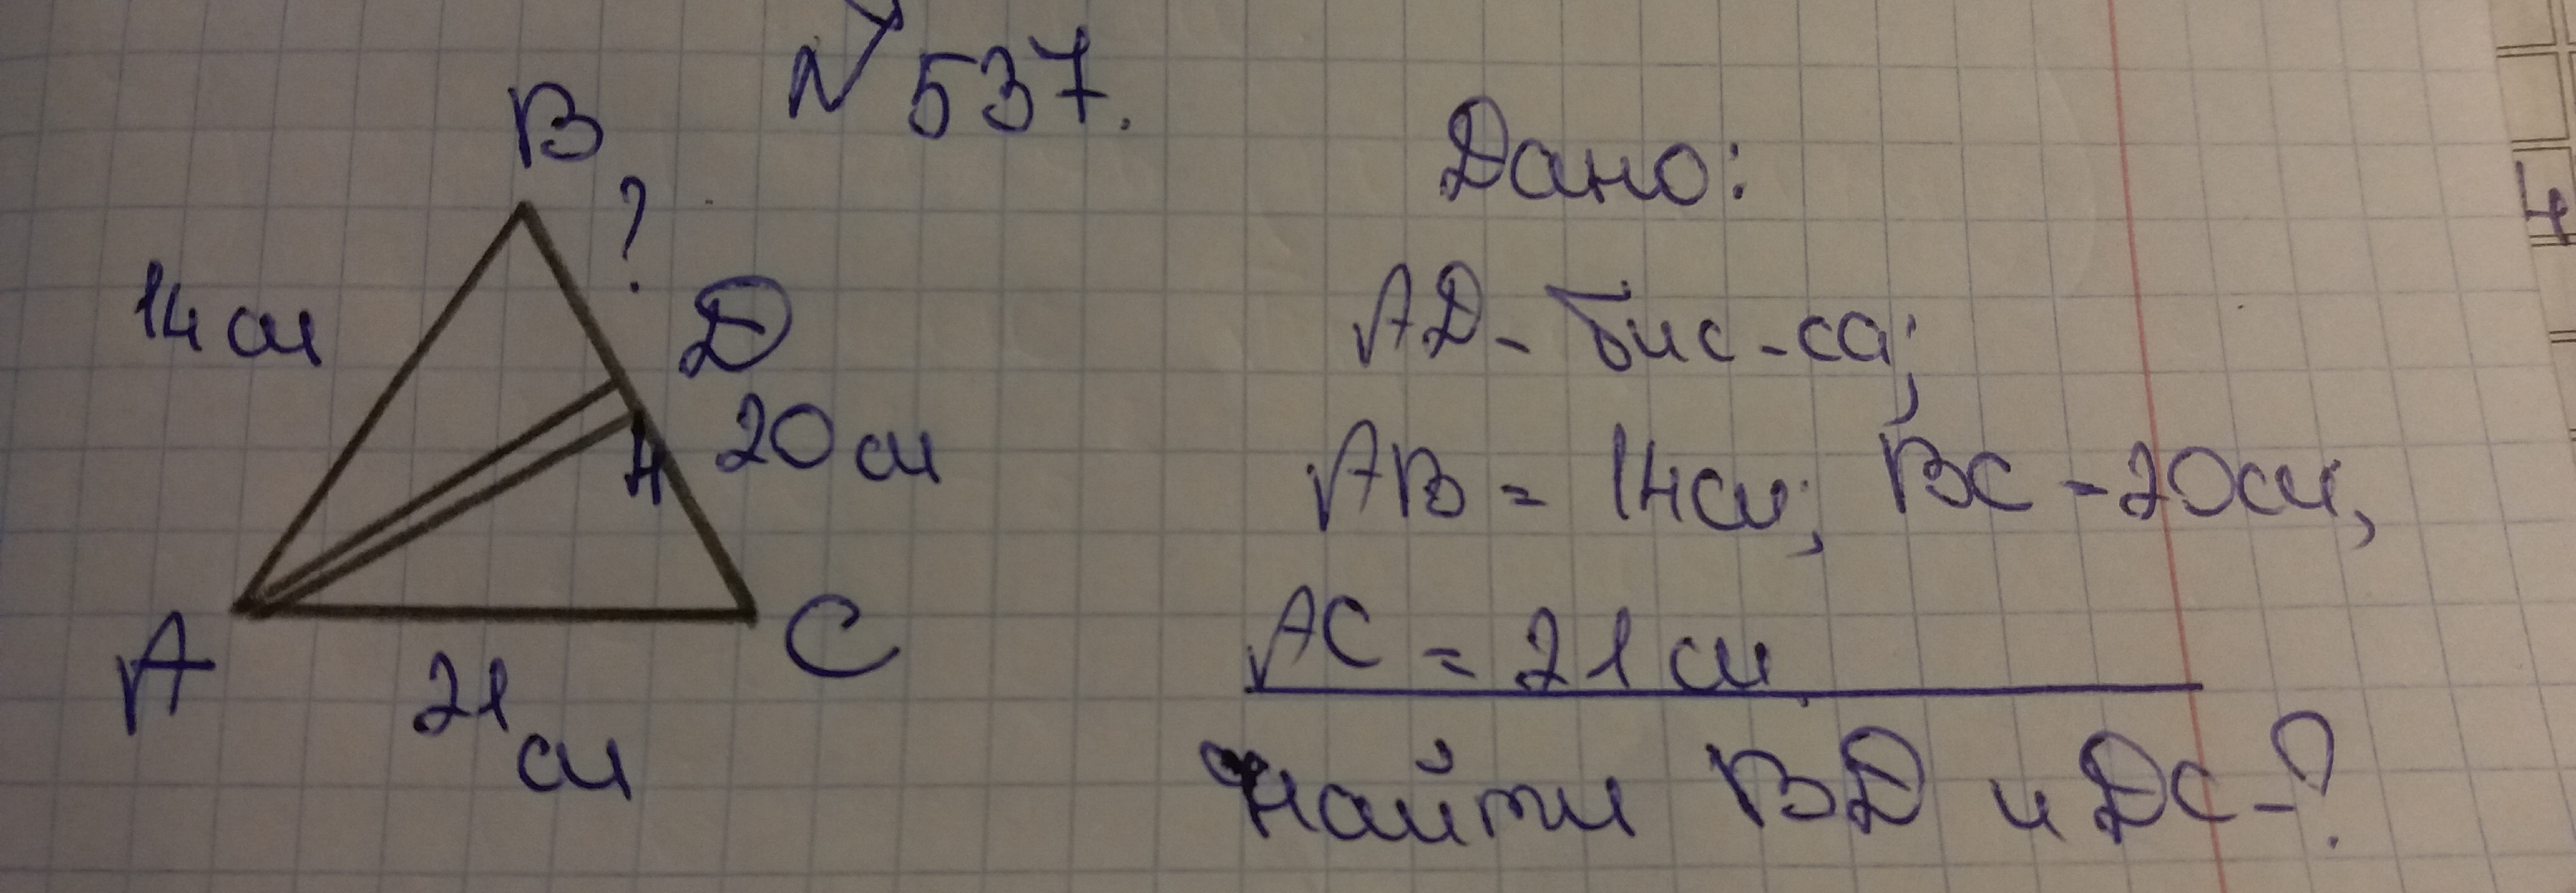 № 537.
B
?
14 см
D
H
20 см
A
21
см
C
Дано:
AD - бис-са;
AB = 14см; BC = 20см,
AC = 21 см.
найти BD и DC-?
4